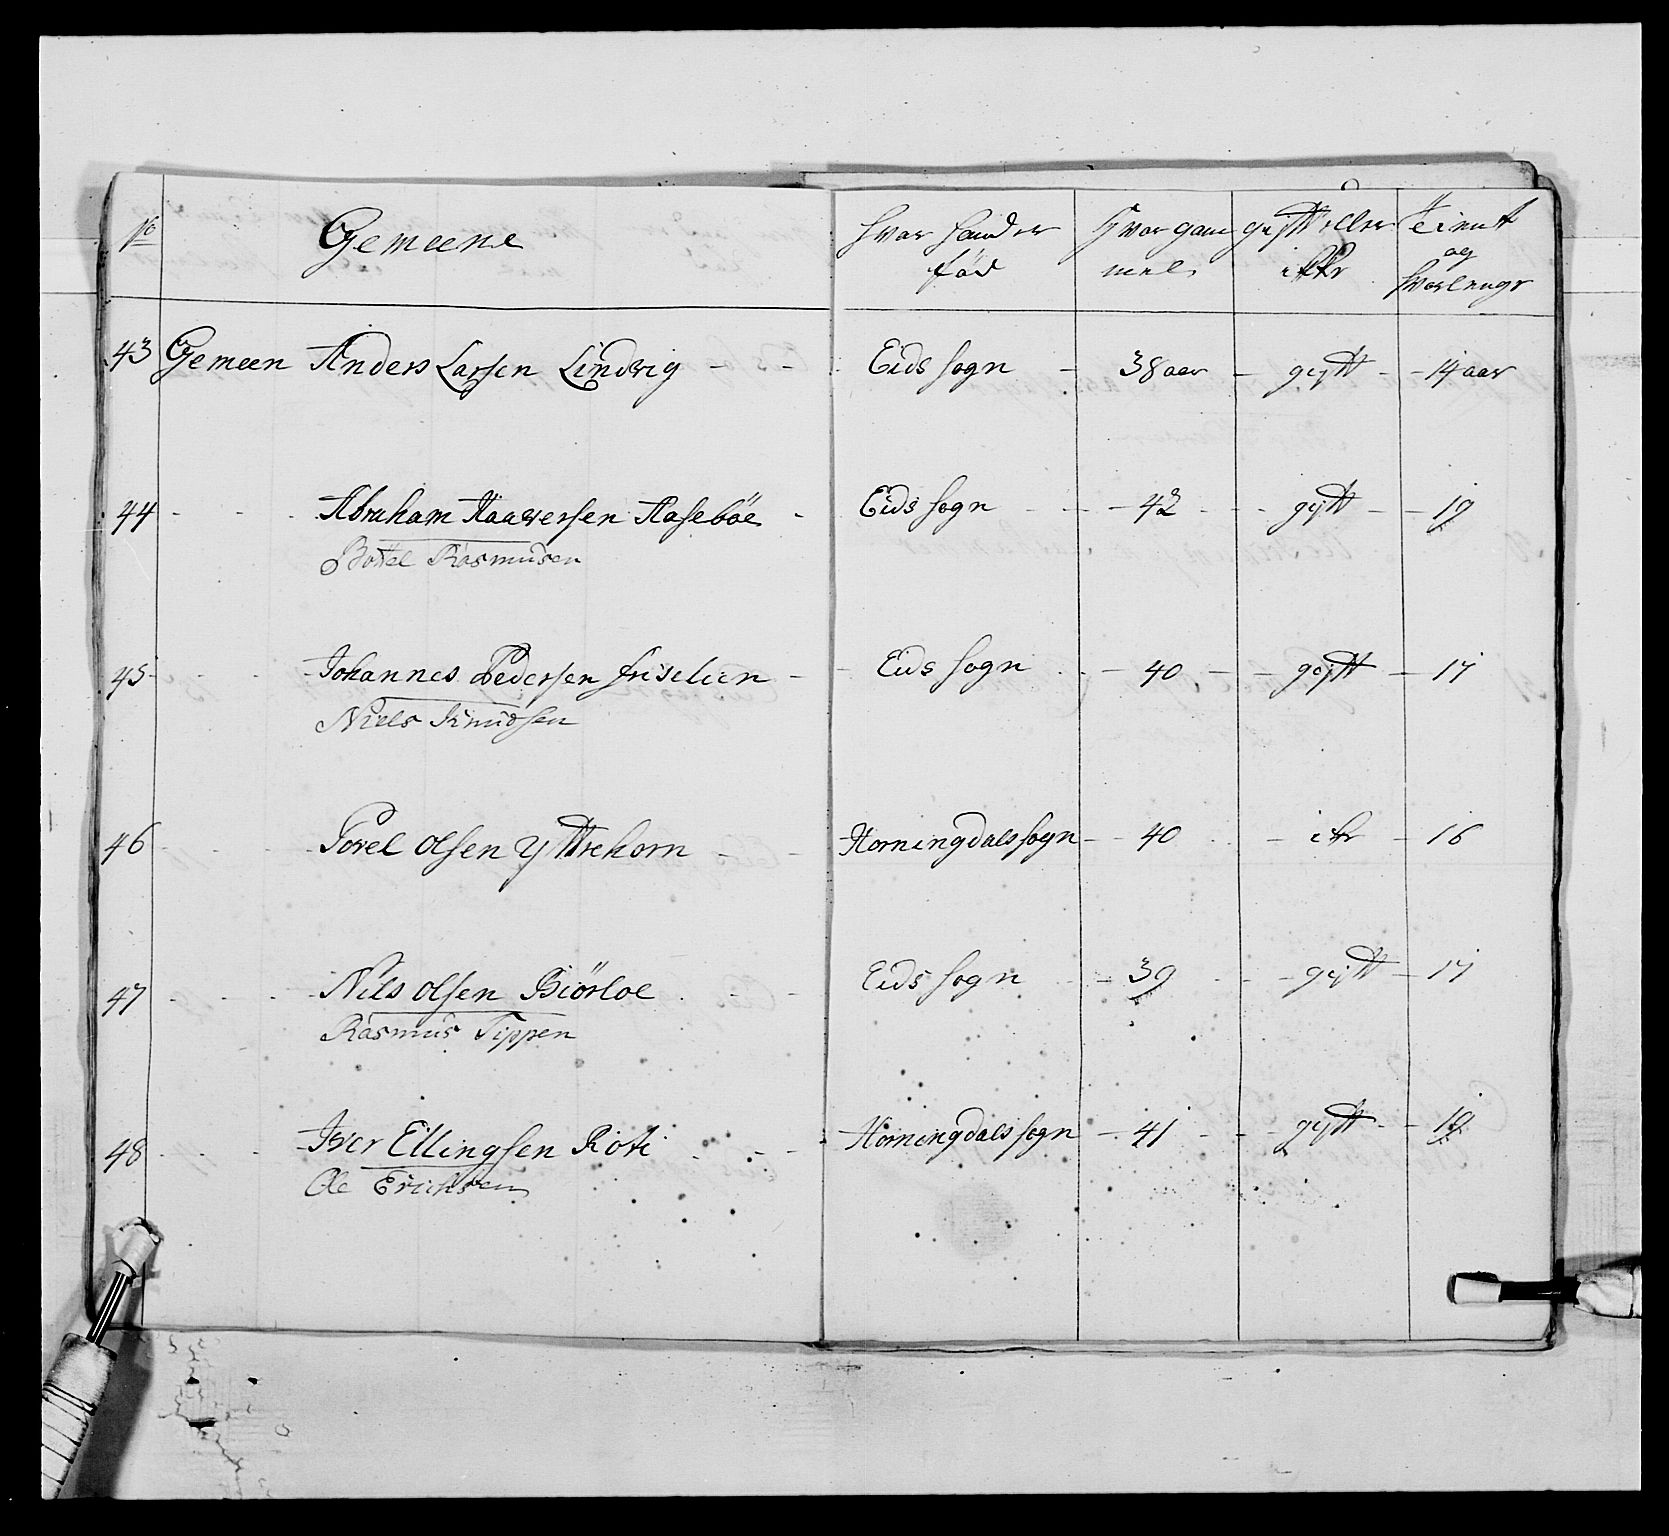 No Gemeene hvor hand er hvor gam gift eller tient
fød mel ikke og
hvorlenge
43 Gemeen Anders Larsen Lindvig - - Eids sogn - 38 aar - gift - 14 aar
44 - - - Abraham Aaversen Aasebøe - Eids sogn - 42 - gift - 19
Bottel Rasmusen
45 - - - Johannes Pedersen friselien - Eids sogn - 40 - gift - 17
Niels Knudsen
46 - - - Povel Olsen Yttrehorn - - Horningdals sogn - 40 - ikr - 16
47 - - - Nils Olsen Biörloe - - Eids sogn - 39 - gift - 17
Rasmus Tippen
48 - - - Iver Ellingsen Roti - - Horningdals sogn - 41 - gift - 19
Ole Erichsen